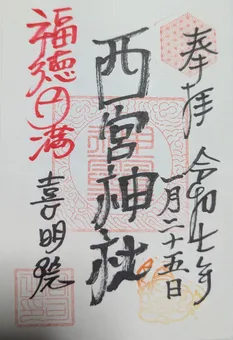 奉拝
令和七年
一月二十五日
西宮神社
福徳円満
喜明